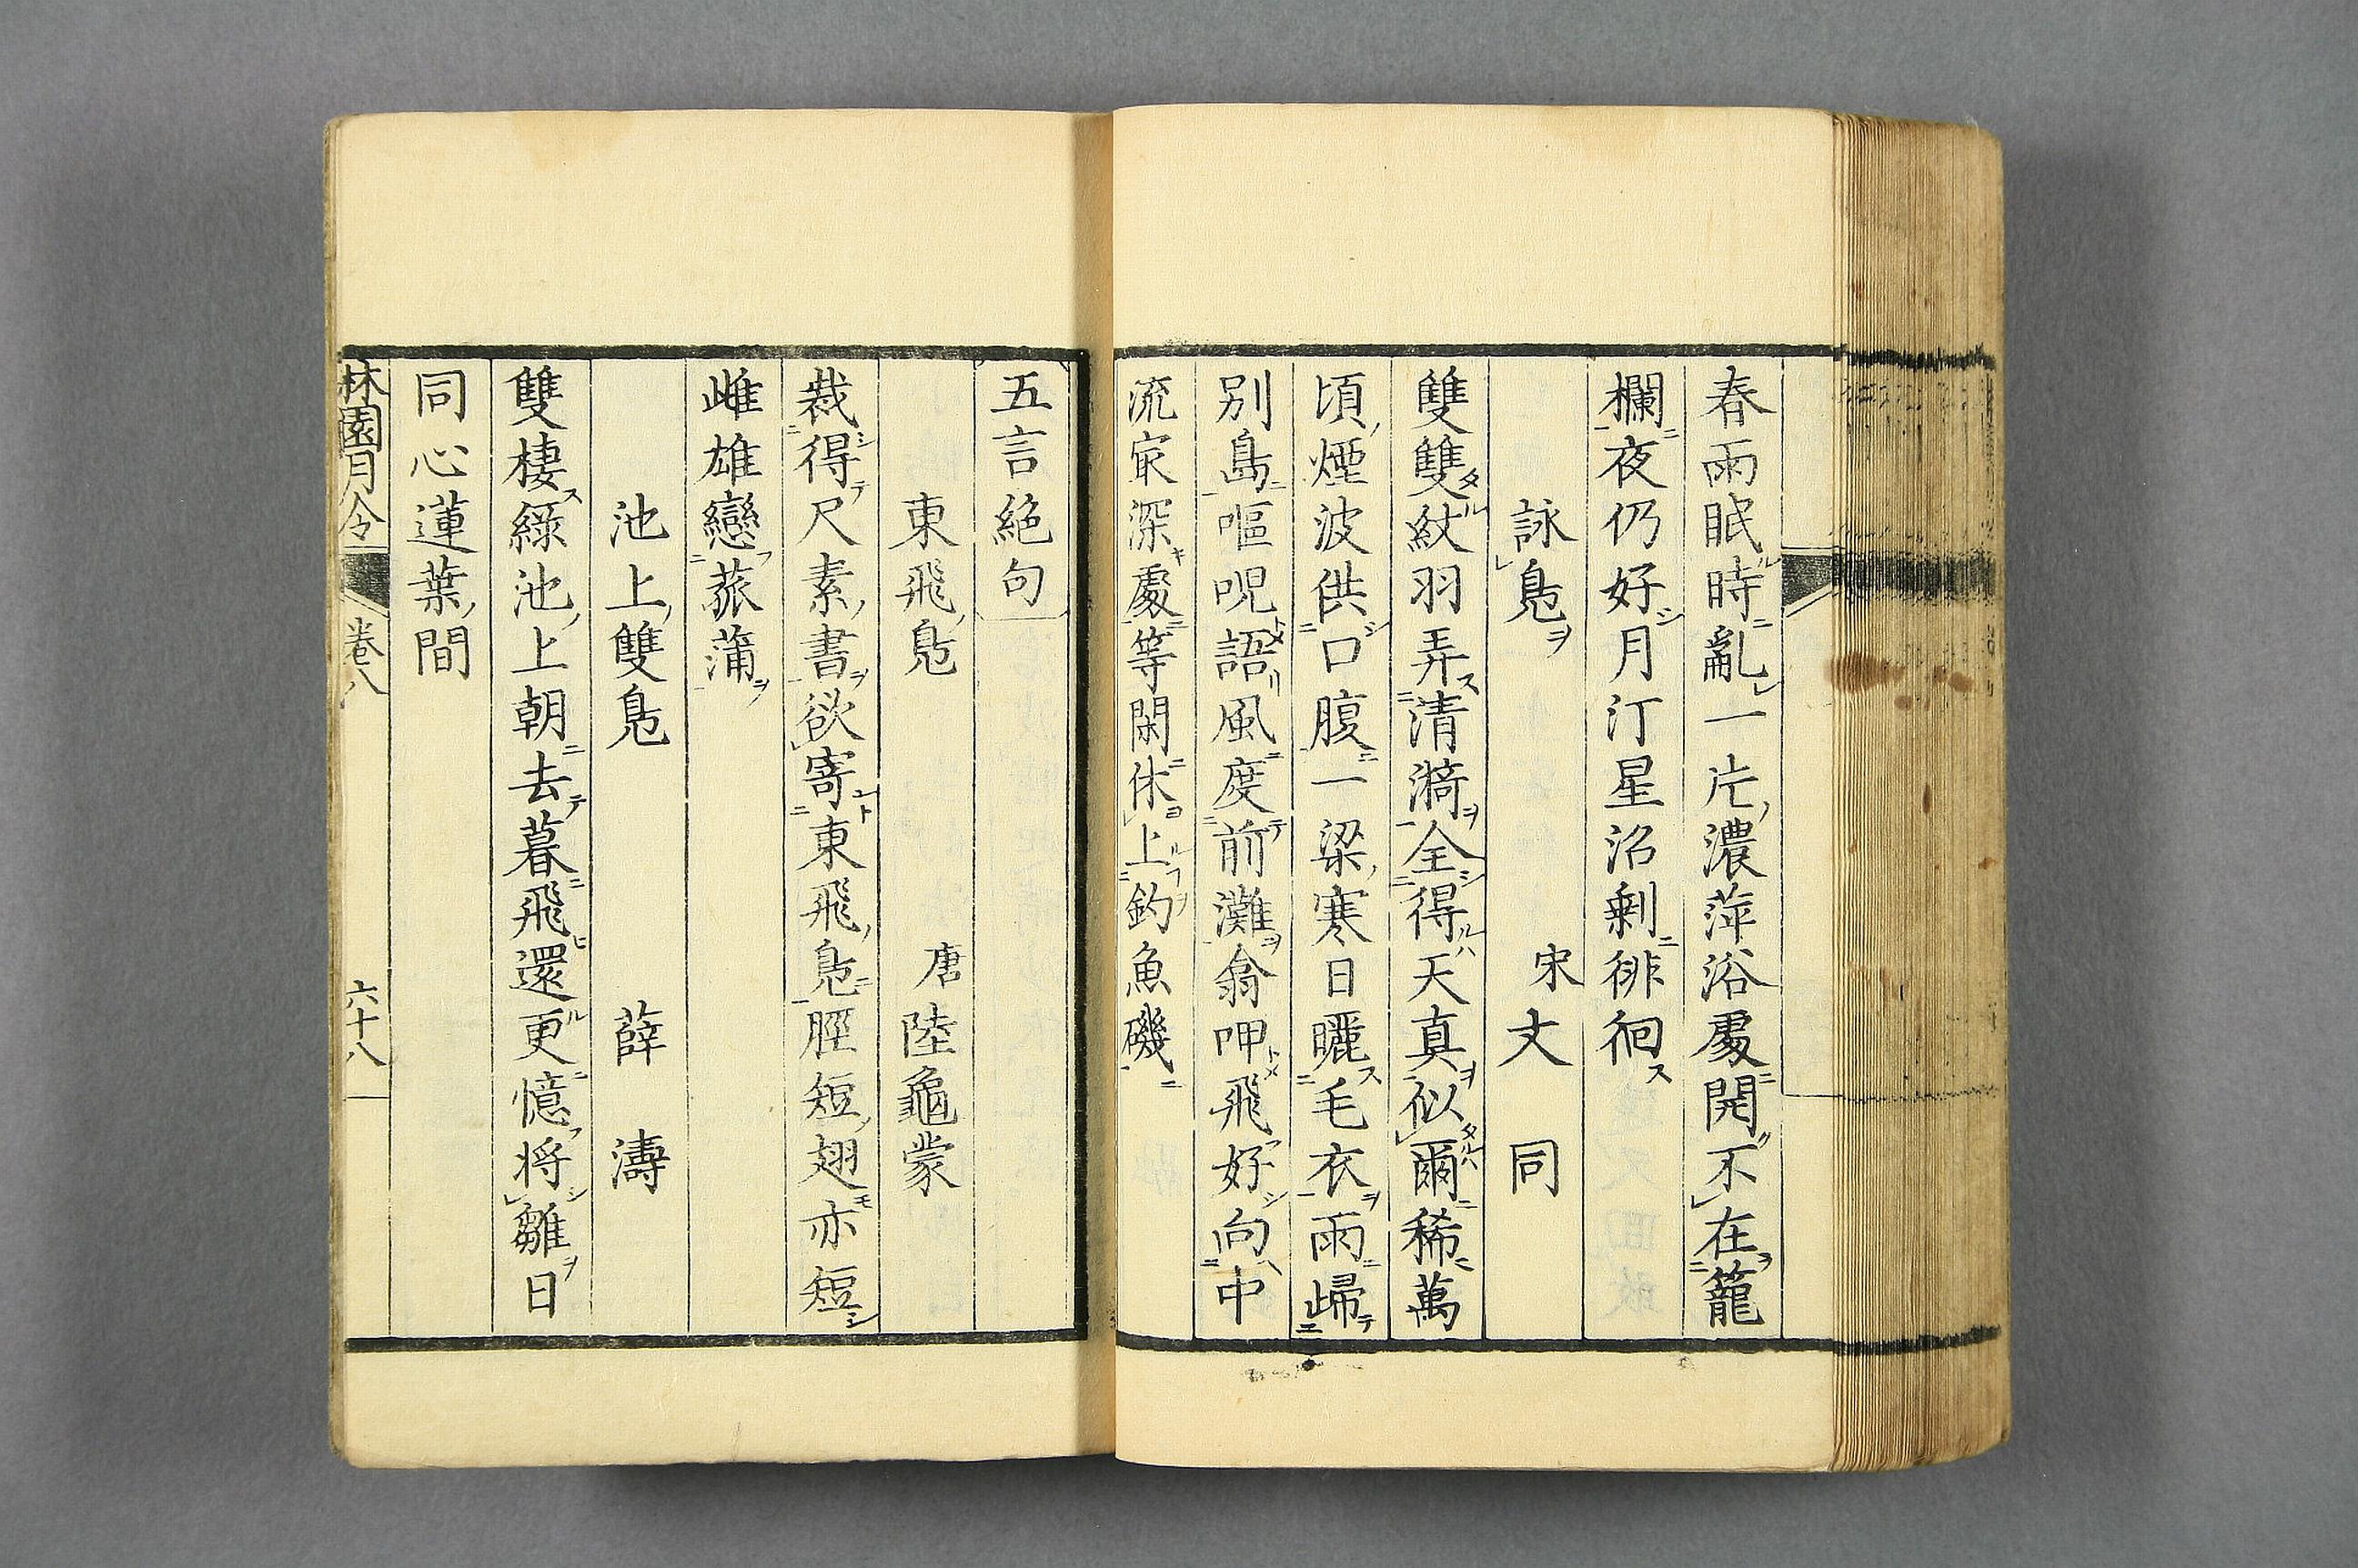 春雨眠時亂一片濃萍浴處開不在籠
欄夜仍好月汀星沼剩徘徊
詠鳧　宋文同
雙雙紋羽弄清漪全得天真似爾稀萬
頃煙波供口腹一梁寒日曬毛衣雨歸
別島嘔呢語風度前灘翕呷飛好向中
流㝡深處等閑休上釣魚磯
五言絕句
東飛鳧　唐陸龜蒙
裁得尺素書欲寄東飛鳧脛短翅亦短
雌雄戀菰蒲
池上雙鳧　薛濤
雙棲綠池上朝去暮飛還更憶将雛日
同心蓮葉間
林園月令　卷八　六十八